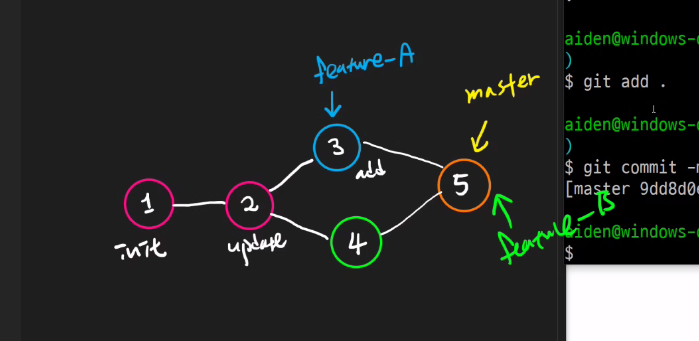 feature-A
master
1
2
3
4
5
init
update
add
feature-B
aiden@windows-
)
$ git add .
aiden@windows-
)
$ git commit -
[master 9dd8d0
aiden@windows-
$